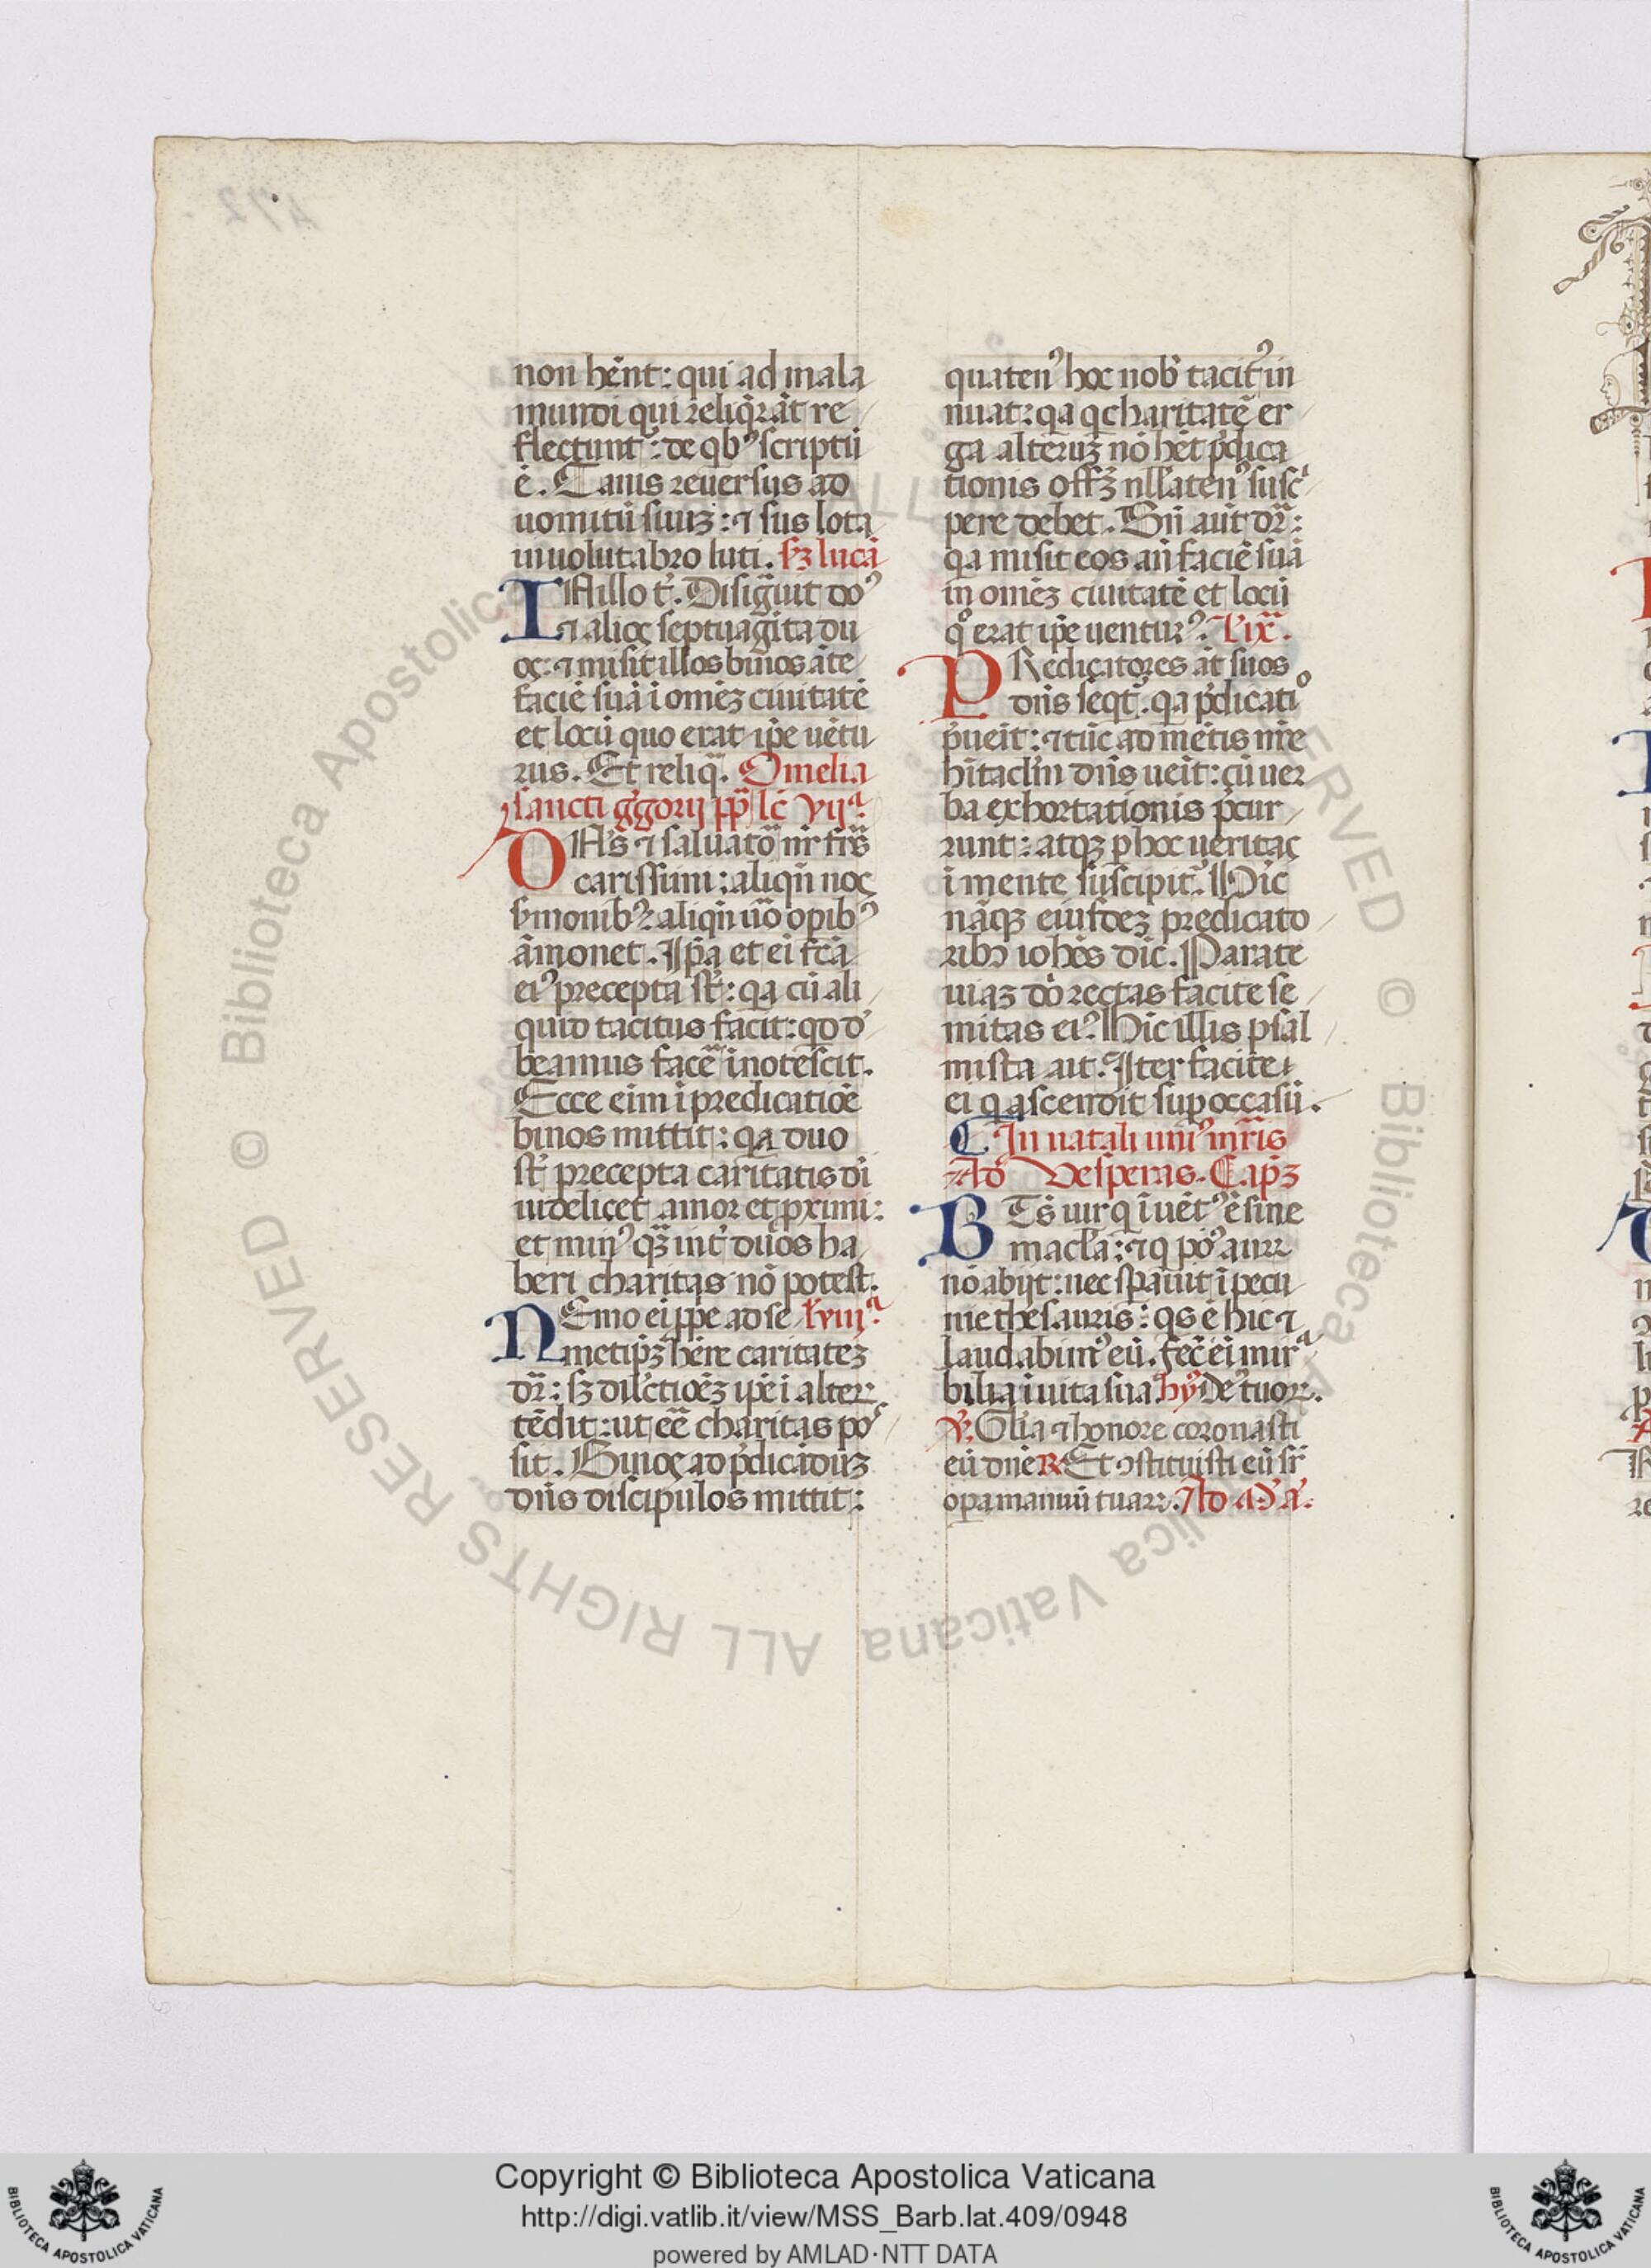 non hēnt: qui ad mala
mundi qui reliq̄rāt re
flectunt᷑: de qb᷒ scriptū
ē. Canis reuersus ad
uomitū suuꝫ: ⁊ sus lota
in uolutabro luti. sꝫ lucā
IN illo t̄. Disiḡuit do᷒
⁊ alios septuagīta du
os: ⁊ misit illos binos āte
faciē suā ī omēꝫ ciuitatē
et locū quo erat ip̄e uētu
rus. Et reliq̄. Omelia
sancti g̓gorij pp̄ lc̄ vijᵃ.
DN̄s ⁊ saluato᷑ nr̄ fr̄s
carissimi: aliqn̄ nos
s̓monib᷒: aliqn̄ uō opib᷒
āmonet. Ip̄a et ei fc̄a
ei᷒ precepta st̄: qa cū ali
quid tacitus facit: qd d̓
beamus face᷑ inotescit.
Ecce eim ī predicatiōē
binos mittit: qa duo
st̄ precepta caritatis dī
uidelicet amor et ꝓximi:
et min᷒ qꝫ int̓ duos ha
beri charitas nō potest.
NEmo ei ꝓpe ad se lc̄ viijᵃ.
metip̄ꝫ hēre caritateꝫ
dr̄: sꝫ dilctiōēꝫ ip̄e ī alterꝝ
tēdit: ut eē charitas pos
sit. Binos ad p̓dicāduꝫ
dn̄s discipulos mittit:
quaten᷒ hoc nob̄ tacit᷒ in
nuat: qa q charitatē er
ga alteruꝫ nō hēt p̓dica
tionis offꝫ nllaten᷒ susci
pere debet. Bn̄ aūt dr̄:
qa misit eos an̄ faciē suā
in omēꝫ ciuitatē et locū
qͦ erat ip̄e uentur᷒. l̓ ix̄.
PRedicatores āt suos
dn̄s seqt᷑. qa p̓dicatiͦ
p̓ueit: ⁊ tūc ad mētis nr̄e
hītaclm dn̄s ueit: cū uer
ba exhortationis p̓cur
runt: atqꝫ p hoc ueritas
ī mente suscipit᷑. Hic
nāqꝫ eiusdeꝫ predicato
ribꝫ iohēs dic̄. Parate
uiaꝫ dō rectas facite se
mitas ei᷒. Hic illis psal
mista ait. Iter facite
ei q ascendit sup occasū.
C In natali uni᷒ mr̄is
Ad Vesperas. Cap̄ꝫ
BTs̄ uir q īuēt᷒ ē sine
macl̄a: ⁊ q po᷒ aurꝝ
nō abijt: nec sp̄auit ī pecu
nie thesauris: qs ē hic ⁊
laudabim᷒ eū. fec̄ ei mirᵃ
bilia ī uita sua hȳ De᷒ tuoꝝ.
℣. Glīa ⁊ honore coronasti
eū dn̄e ℟ Et ꝯstituisti eū sr̄
opa manuū tuaꝝ. Ad M̄ ā.
Copyright © Biblioteca Apostolica Vaticana
http://digi.vatlib.it/view/MSS_Barb.lat.409/0948
powered by AMLAD·NTT DATA